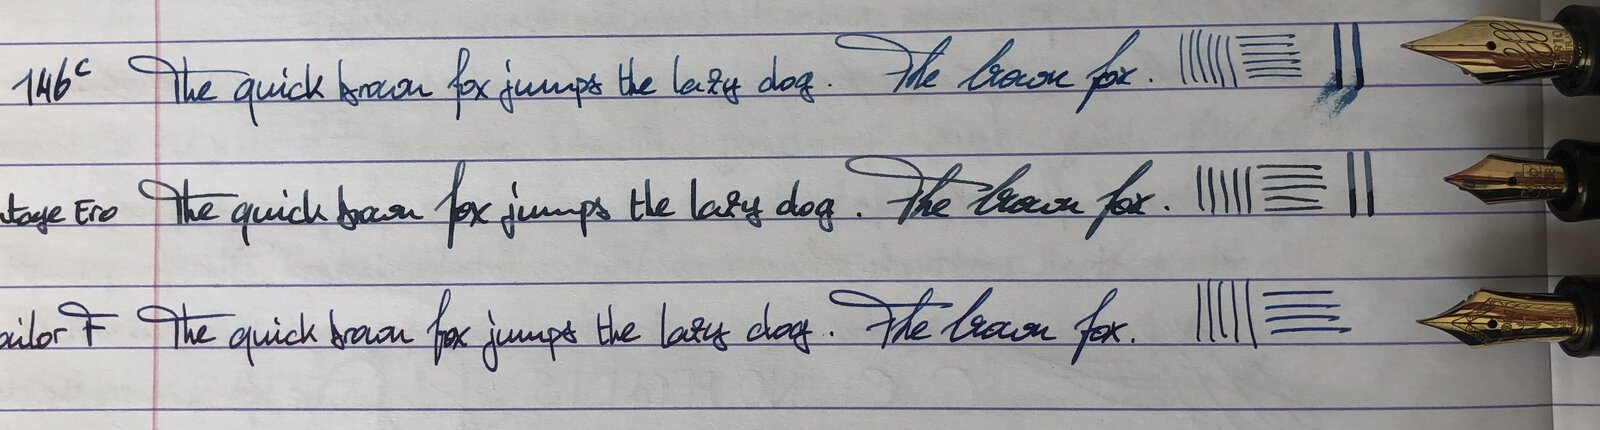 146c The quick brown fox jumps the lazy dog. The brown fox.
tage Ero The quick brown fox jumps the lazy dog. The brown fox.
ailor F The quick brown fox jumps the lazy dog. The brown fox.